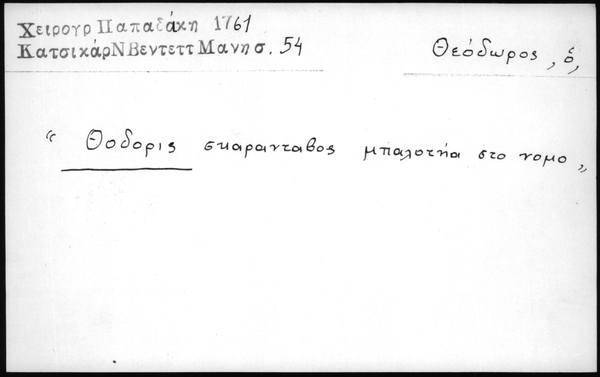 Χειρουρ Παπαδάκη 1761
ΚατσικάρΝΒεντεττ Μανησ. 54
Θεόδωρος, ὁ,
“ Θοδορις σκαρανταβος μπαλοτηα στο νομο „